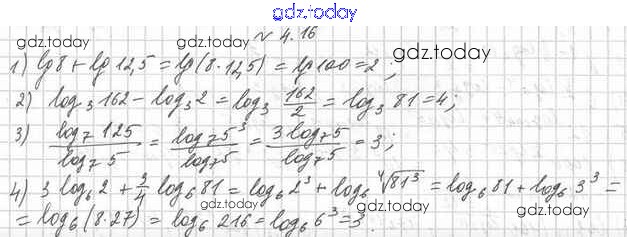 gdz.today
№ 4.16
gdz.today gdz.today gdz.today
1) lg 8 + lg 12,5 = lg (8 · 12,5) = lg 100 = 2;
2) log₃ 162 - log₃ 2 = log₃ 162/2 = log₃ 81 = 4;
3) log₇ 125 / log₇ 5 = log₇ 5³ / log₇ 5 = 3 log₇ 5 / log₇ 5 = 3;
gdz.today gdz.today gdz.today
4) 3 log₆ 2 + 3/4 log₆ 81 = log₆ 2³ + log₆ ⁴√81³ = log₆ 81 + log₆ 3³ =
= log₆ (8 · 27) = log₆ 216 = log₆ 6³ = 3
gdz.today gdz.today gdz.today